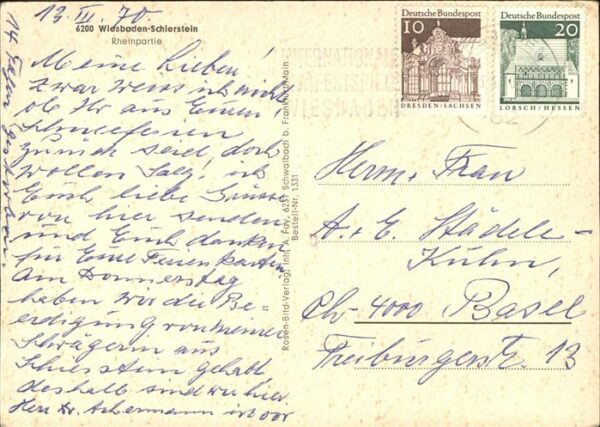 13. III. 70.
6200 Wiesbaden-Schierstein
Rheinpartie
Meine Lieben!
Zwar weiss ich nicht
ob Ihr aus Euren
Schneeferien
zurück seid, doch
wollen Salg. ich
Euch liebe Grüsse
von hier senden
und Euch danken
für Eure Ferienkarte.
Am Donnerstag
haben wir die Be-
erdigung von meiner
Schwägerin aus
Schierstein gehabt
deshalb sind wir hier.
Herr Dr. Achermann ist vor
14 Tagen gestorben.
Rosen-Bild-Verlag, Inh. A. Fay, 6231 Schwalbach b. Frankfurt/Main
Bestell-Nr. 1331
Deutsche Bundespost
10
DRESDEN/SACHSEN
Deutsche Bundespost
20
LORSCH/HESSEN
INTERNATIONALE
MAIFESTSPIELE
WIESBADEN
62
Herrn. Frau
A. + E. Städele-
Kühn,
Ch-4000 Basel
Freiburgerstr. 13